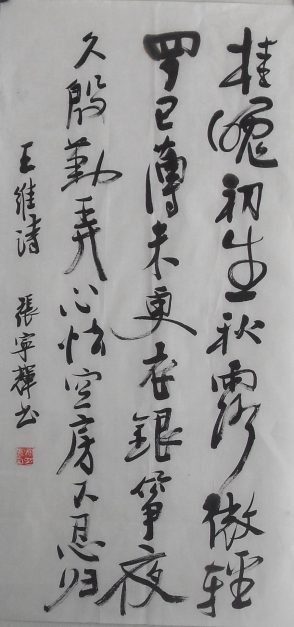 桂魄初生秋露微輕
罗已薄未更衣銀筝夜
久殷勤弄心怯空房不忍归
王維诗 張寧輝书